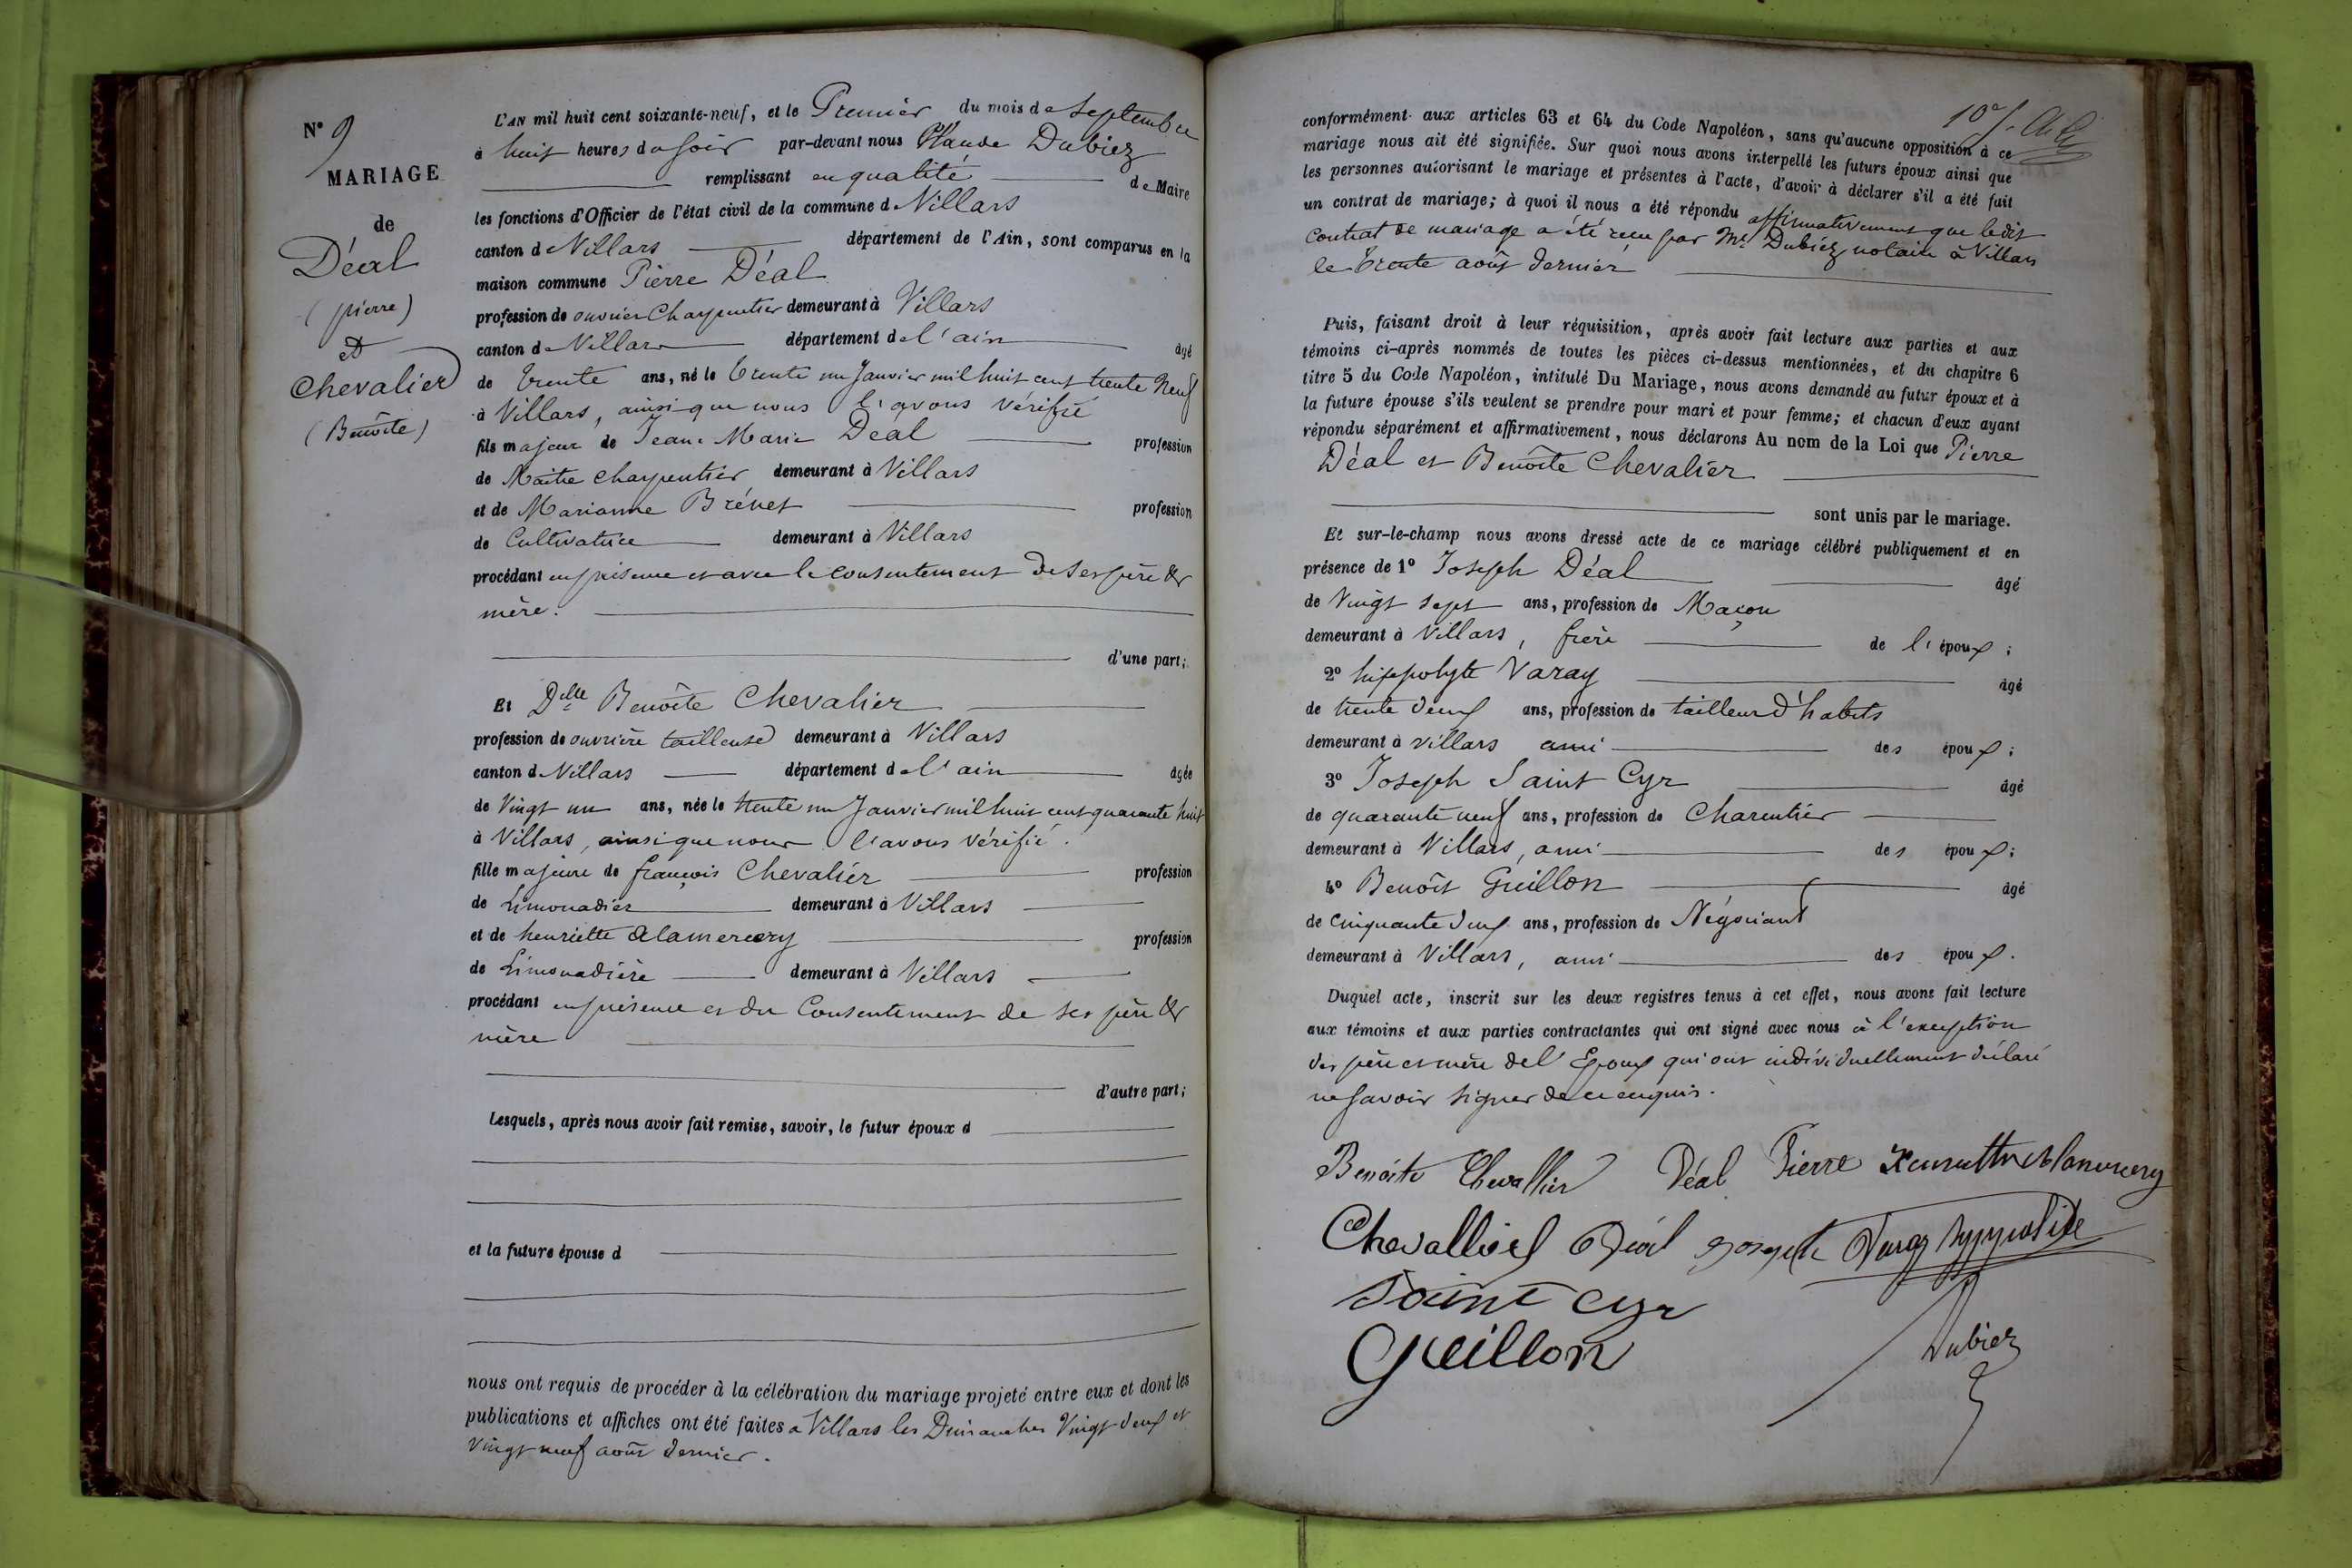 N° 9
MARIAGE
de
Déal
(pierre)
et
Chevalier
(Benoîte)
L'AN mil huit cent soixante-neuf, et le Premier du mois de Septembre
à huit heures du Soir par-devant nous Claude Dubiez
remplissant en qualité de Maire
les fonctions d'Officier de l'état civil de la commune d Villars
canton d Villars département de l'Ain, sont comparus en la
maison commune Pierre Déal
profession de ouvrier Charpentier demeurant à Villars
canton de Villars département de l'ain âgé
de trente ans, né le trente un Janvier mil huit cent trente Neuf
à Villars, ainsi que nous l'avons vérifié
fils majeur de Jean Marie Déal profession
de Maître charpentier demeurant à Villars
et de Marianne Brévet profession
de Cultivatrice demeurant à Villars
procédant en présence et avec le consentement de ses père &
mère.
d'une part;
Et Delle Benoîte Chevalier
profession de ouvrière tailleuse demeurant à Villars
canton d Villars département de l'ain âgée
de Vingt un ans, née le trente un Janvier mil huit cent quarante huit
à Villars, ainsi que nous l'avons vérifié.
fille majeure de françois Chevalier profession
de Limonadier demeurant à Villars
et de henriette Alamercery profession
de Limonadière demeurant à Villars
procédant en présence et du Consentement de ses père &
mère
d'autre part;
Lesquels, après nous avoir fait remise, savoir, le futur époux d
et la future épouse d
nous ont requis de procéder à la célébration du mariage projeté entre eux et dont les
publications et affiches ont été faites à Villars les Dimanches Vingt deux et
Vingt neuf août dernier.
10e f.
conformément aux articles 63 et 64 du Code Napoléon, sans qu'aucune opposition à ce
mariage nous ait été signifiée. Sur quoi nous avons interpellé les futurs époux ainsi que
les personnes autorisant le mariage et présentes à l'acte, d'avoir à déclarer s'il a été fait
un contrat de mariage; à quoi il nous a été répondu affirmativement que ledit
Contrat de mariage a été reçu par Me Dubiez notaire à Villars
le trente août dernier
Puis, faisant droit à leur réquisition, après avoir fait lecture aux parties et aux
témoins ci-après nommés de toutes les pièces ci-dessus mentionnées, et du chapitre 6
titre 5 du Code Napoléon, intitulé Du Mariage, nous avons demandé au futur époux et à
la future épouse s'ils veulent se prendre pour mari et pour femme; et chacun d'eux ayant
répondu séparément et affirmativement, nous déclarons Au nom de la Loi que Pierre
Déal et Benoîte Chevalier
sont unis par le mariage.
Et sur-le-champ nous avons dressé acte de ce mariage célébré publiquement et en
présence de 1° Joseph Déal âgé
de Vingt sept ans, profession de Maçon
demeurant à Villars, frère de l'époux;
2° hippolyte Varay âgé
de trente deux ans, profession de tailleur d'habits
demeurant à villars ami des époux;
3° Joseph Saint Cyr âgé
de quarante neuf ans, profession de Charentier
demeurant à Villars, ami des époux;
4° Benoît Guillon âgé
de cinquante deux ans, profession de Négociant
demeurant à Villars, ami des époux.
Duquel acte, inscrit sur les deux registres tenus à cet effet, nous avons fait lecture
aux témoins et aux parties contractantes qui ont signé avec nous à l'exception
des père et mère de l'Epoux qui ont individuellement déclaré
ne Savoir signer de ce enquis.
Benoite Chevallier Déal Pierre Henriette Alamercery
Chevallier Déal Joseph Varay hyppolite
Saint Cyr
Guillon Dubiez